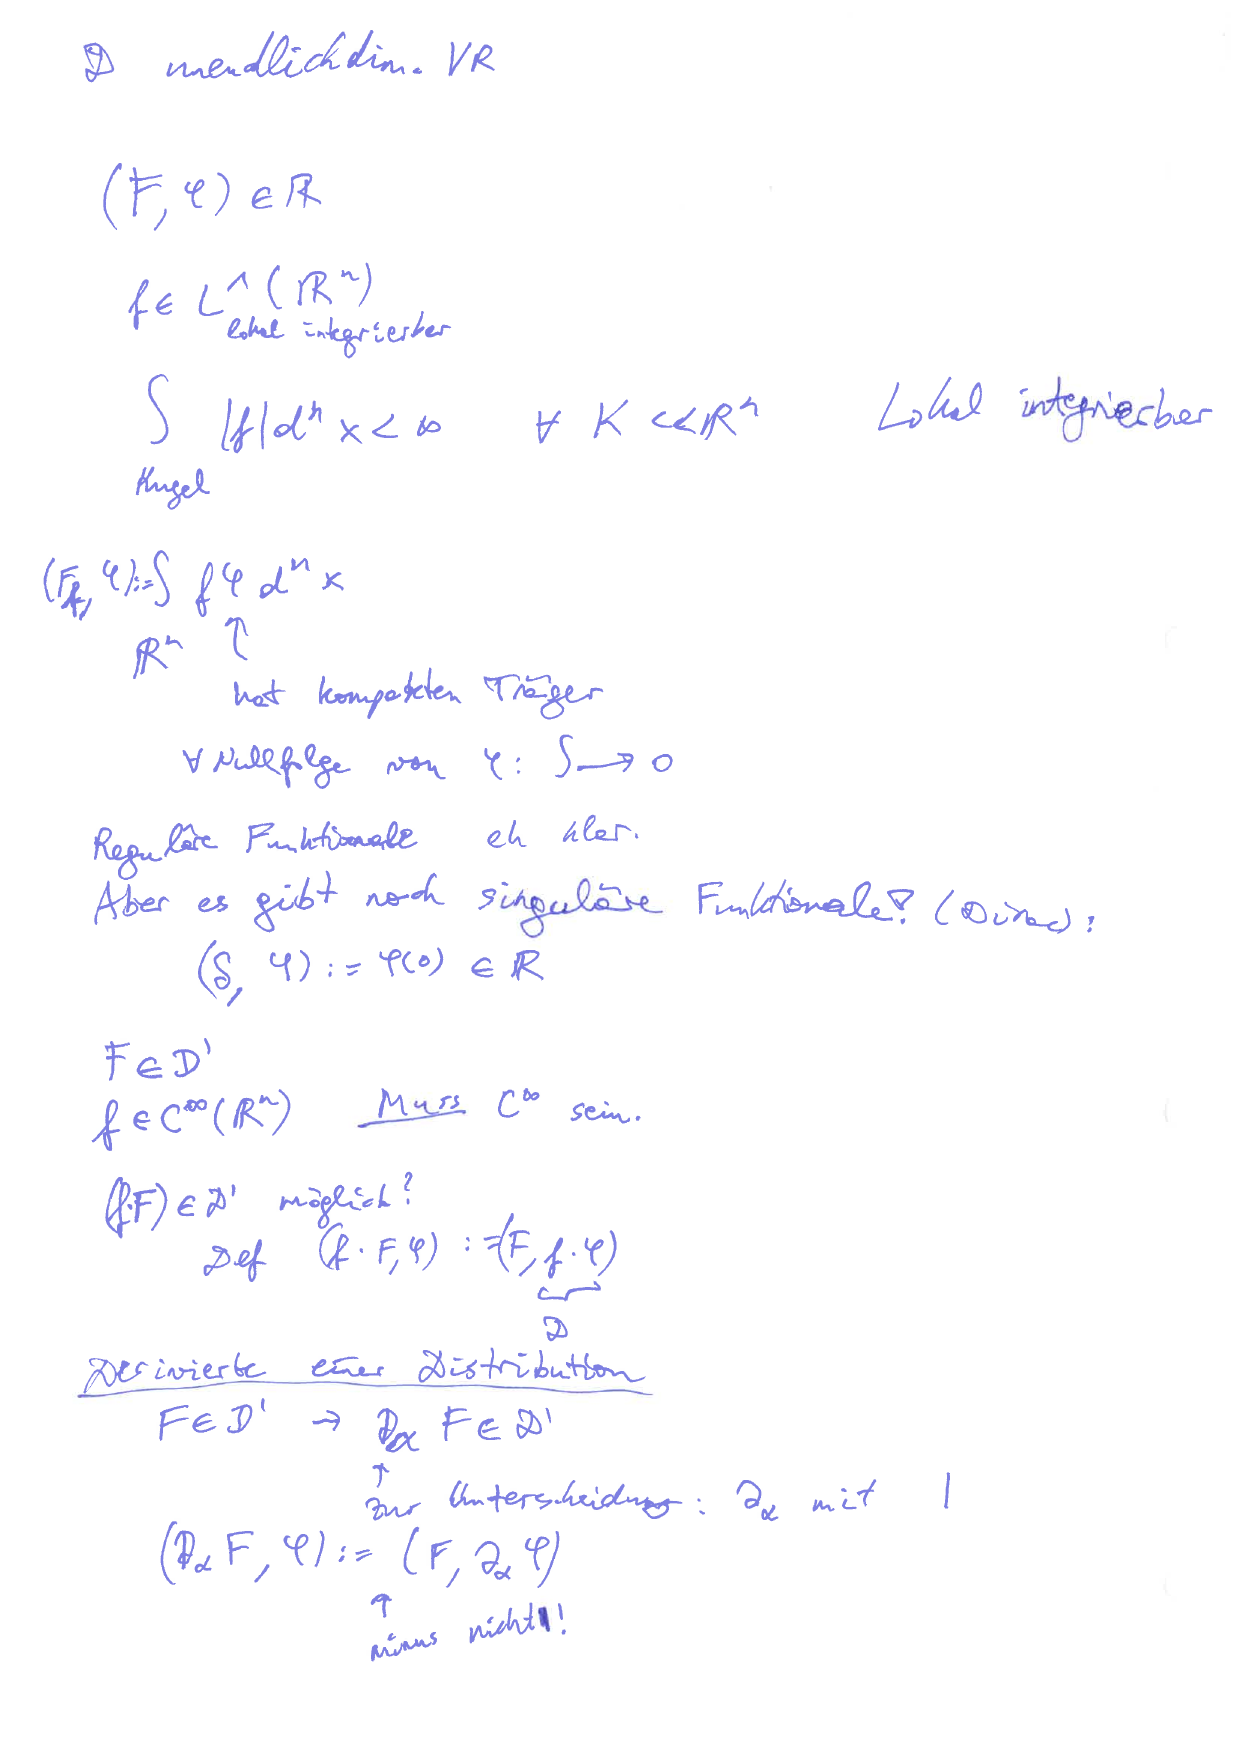 𝒟 unendlichdim. VR
(F, φ) ∈ ℝ
f ∈ L¹(ℝⁿ)
lokal integrierbar
∫ |f| dⁿx < ∞ ∀ K ⊂⊂ ℝⁿ Lokal integrierbar
Kugel
(F_f, φ) := ∫ f φ dⁿx
ℝⁿ ↑
hat kompakten Träger
∀ Nullfolge von φ: ∫ → 0
Reguläre Funktionale eh klar.
Aber es gibt noch singuläre Funktionale! (Dirac):
(δ, φ) := φ(0) ∈ ℝ
F ∈ 𝒟'
f ∈ C^∞(ℝⁿ) Muss C^∞ sein.
(f·F) ∈ 𝒟' möglich?
Def (f · F, φ) := (F, f · φ)
𝒟
Derivierte einer Distribution
F ∈ 𝒟' → D_α F ∈ 𝒟'
↑
zur Unterscheidung: ∂_α mit |
(D_α F, φ) := (F, ∂_α φ)
↑
minus nicht!